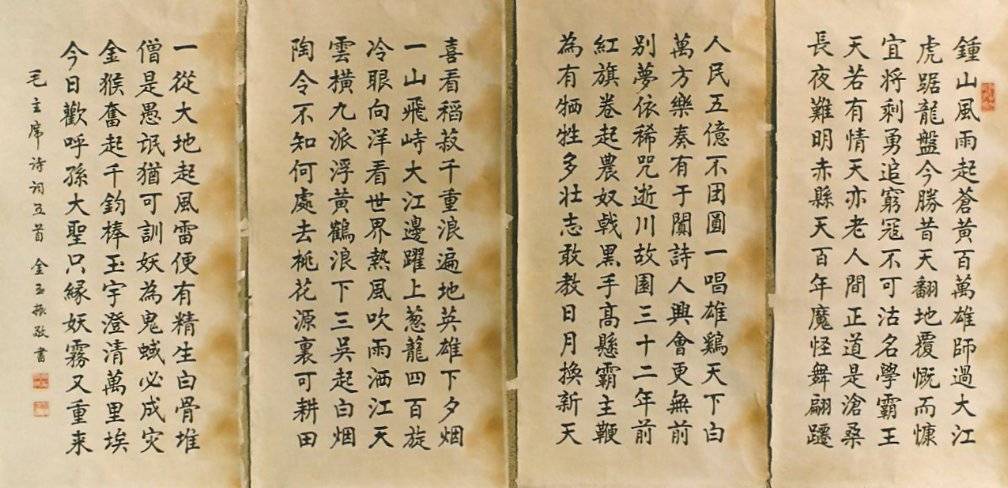 鍾山風雨起蒼黃百萬雄師過大江
虎踞龍盤今勝昔天翻地覆慨而慷
宜將剩勇追窮寇不可沽名學霸王
天若有情天亦老人間正道是滄桑
長夜難明赤縣天百年魔怪舞翩躚
人民五億不团圓一唱雄鷄天下白
萬方樂奏有于闐詩人興會更無前
别夢依稀咒逝川故園三十二年前
紅旗卷起農奴戟黑手高懸霸主鞭
為有牺牲多壮志敢教日月換新天
喜看稻菽千重浪遍地英雄下夕烟
一山飛峙大江邊躍上葱龍四百旋
冷眼向洋看世界熱風吹雨洒江天
雲横九派浮黄鶴浪下三吳起白烟
陶令不知何處去桃花源裏可耕田
一從大地起風雷便有精生白骨堆
僧是愚氓猶可訓妖為鬼蜮必成灾
金猴奮起千鈞棒玉宇澄清萬里埃
今日歡呼孫大聖只緣妖霧又重來
毛主席诗词五首 金玉振敬書